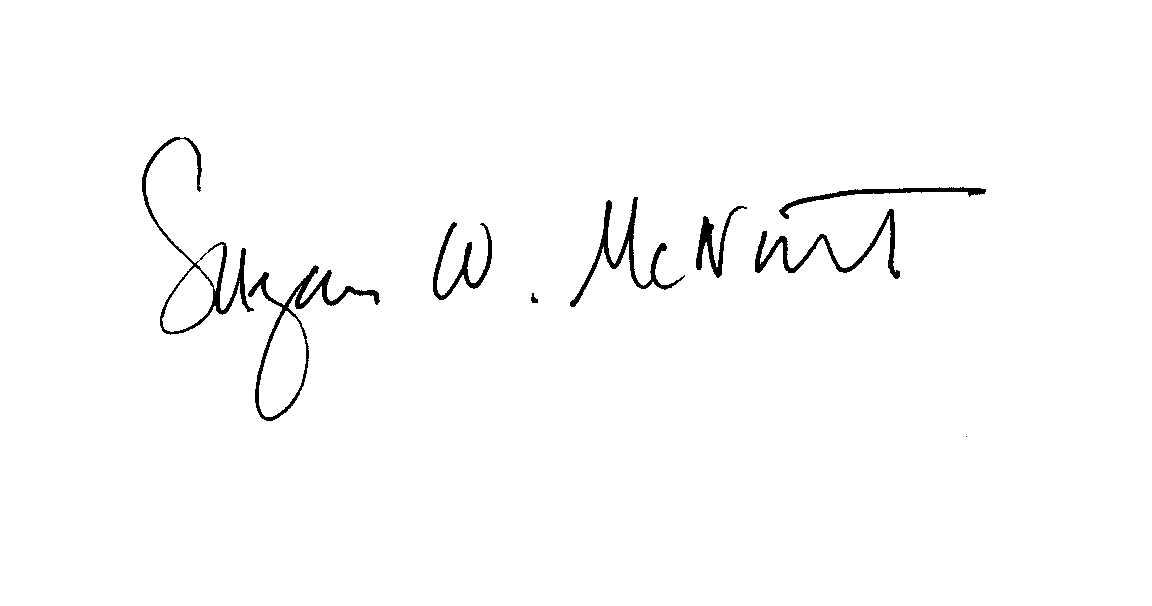 Suzan W. McNutt